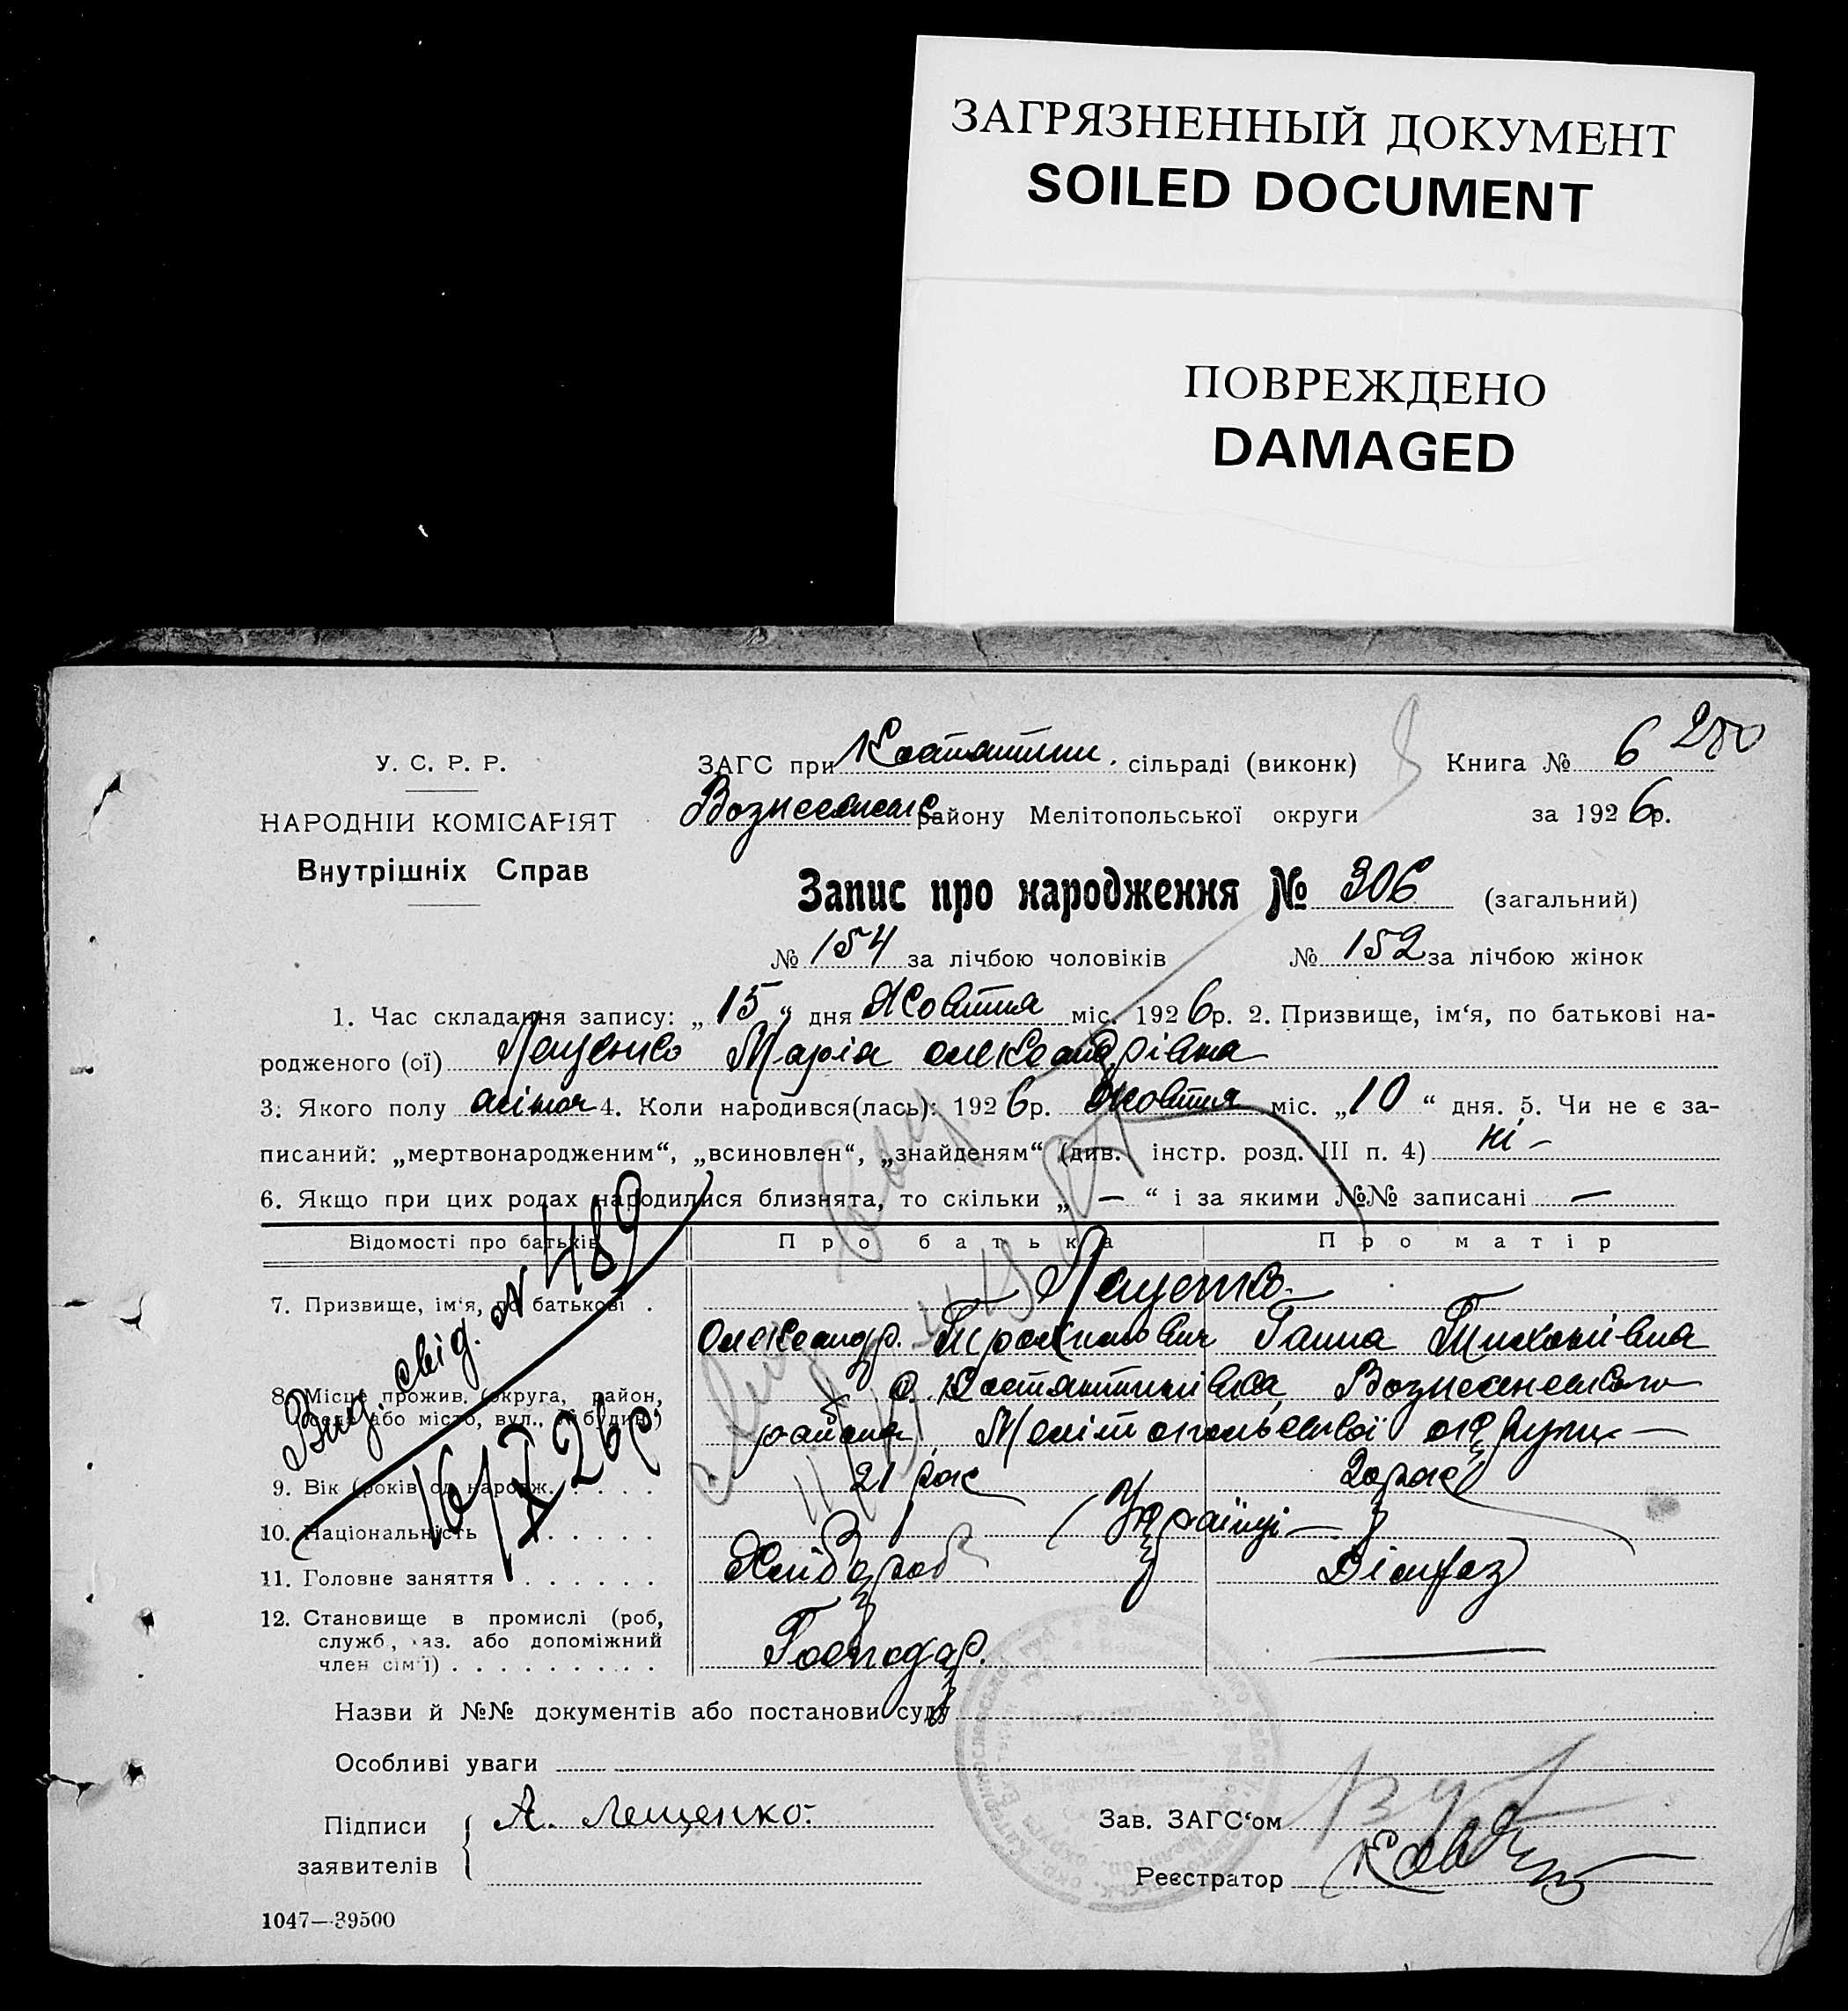 ЗАГРЯЗНЕННЫЙ ДОКУМЕНТ
SOILED DOCUMENT
ПОВРЕЖДЕНО
DAMAGED
280
У. С. Р. Р.
НАРОДНІЙ КОМІСАРІЯТ
Внутрішніх Справ
ЗАГС при Костянтин. сільраді (виконк) Книга № 6
Вознесенськ району Мелітопольської округи за 1926р.
Запис про народження № 306 (загальний)
№ 154 за лічбою чоловіків № 152 за лічбою жінок
1. Час складання запису: „15“ дня Жовтня міс. 1926р. 2. Призвище, ім‘я, по батькові на-
родженого (ої) Лещенко Марія Олександрівна
3. Якого полу жіноч 4. Коли народився(лась): 1926р. Жовтня міс. „10“ дня. 5. Чи не є за-
писаний: „мертвонародженим“, „всиновлен“, „знайденям“ (див. інстр. розд. III п. 4) ні –
6. Якщо при цих родах народилися близнята, то скільки „ — “ і за якими №№ записані —
Відомості про батьків Про батька Про матір
Лещенко
7. Призвище, ім‘я, по батькові . Олександр. Трохимович Ганна Тихонівна
8. Місце прожив. (округа, район, с. Костянтинівка, Вознесенського
село або місто, вул., № будин.) района Мелітопольської округи —
9. Вік (років од народж. . . . . . 21 рок 20 рок
10. Національність . . . . . . Українці —
11. Головне заняття . . . . . . Хлібороб
12. Становище в промислі (роб,
служб, аз. або допоміжний
член сім‘ї) . . . . . . . . . Господар. —
Вид. свід. № 489
16/X 26р.
Назви й №№ документів або постанови суду
Особливі уваги
Підписи заявителів А. Лещенко.
Зав. ЗАГС‘ом
Реєстратор
1047—39500